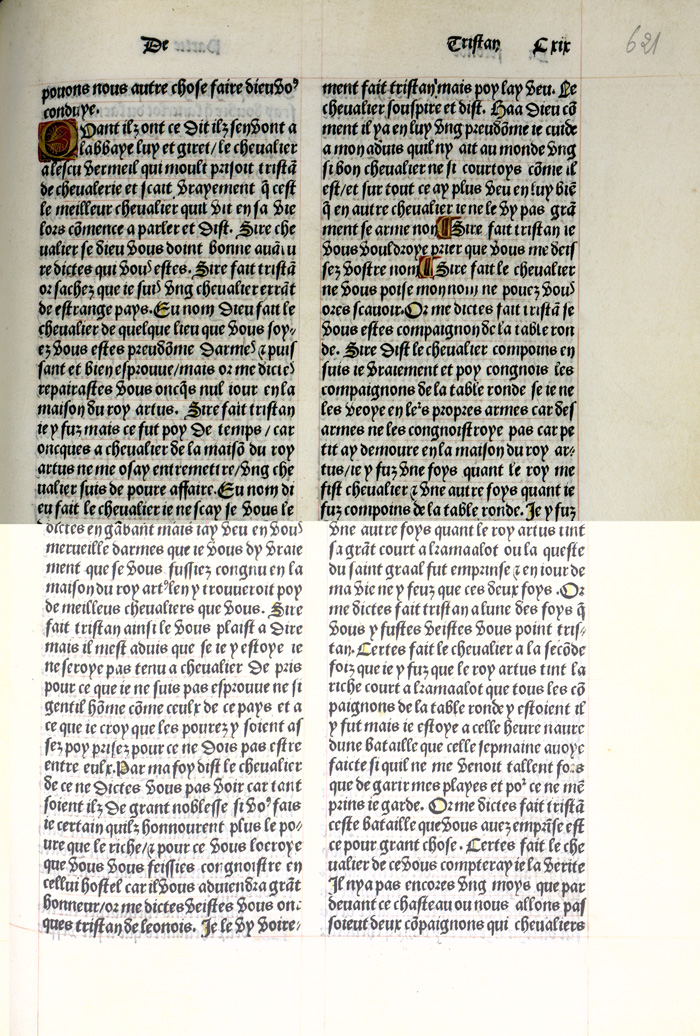 De
Tristan Cxix
621
pouons nous autre chose faire dieu voꝰ
conduye.
Quant ilz ont ce Dit ilz sen vont a
labbaye luy et giret/ le chevalier
a lescu vermeil qui moult prisoit tristā
de chevalerie et scait vrayement q̄ cest
le meilleur chevalier quil vit en sa vie
lors cōmence a parler et dist. Sire che
ualier se dieu vous doint bonne auātu
re dictes qui vouꝰ estes. Sire fait tristā
or sachez que ie suiꝰ vng chevalier errāt
de estrange pays. Eu nom Dieu fait le
chevalier de quelque lieu que vous soy-
ez vous estes preudōme Darmeꝰ ⁊ puis
sant et bien esprouue/mais or me dicteꝰ
repairastes vous oncq̄s nul iour en la
maison du roy artus. Sire fait tristan
ie y fuz mais ce fut poy De temps/ car
oncques a chevalier de la maisō du roy
artus ne me osay entremettre/vng che
ualier suis de poure affaire. Eu nom di
eu fait le chevalier ie ne scay se vous le
dictes en gabant mais iay veu en vouꝰ
merveille darmes que ie vous dy vraie
ment que se vous fussiez congnu en la
maison du roy artꝰ len y trouueroit poy
de meilleus chevaliers que vous. Sire
fait tristan ainsi le vous plaist a Dire
mais il mest aduis que se ie y estoye ie
ne seroye pas tenu a chevalier De pris
pour ce que ie ne suis pas esprouue ne si
gentil hōme cōme ceulx de ce pays et a
ce que ie croy que les pourez y soient as
sez poy prisez pour ce ne Dois pas estre
entre eulx. Par ma foy dist le chevalier
de ce ne Dictes vous pas voir car tant
soient ilz De grant noblesse si voꝰ fais
ie certain quilz honnourent plus le po-
ure que le riche/⁊ pour ce vous loeroye
que vous vous feissies congnoistre en
cellui hostel car il vous aduiendra grāt
honneur/or me dictes veistes vous on-
ques tristan de leonois. Je le vy voire-
ment fait tristan mais poy lay veu. Le
chevalier souspire et dist. Haa Dieu cō
ment il ya en luy vng preudōme ie cuide
a mon aduis quil ny ait au monde vng
si bon chevalier ne si courtoys cōme il
est/et sur tout ce ay plus veu en luy biē
q̄ en autre chevalier ie ne le vy pas grā
ment se arme non Sire fait tristan ie
vous vouldroye prier que vous me deis
sez vostre nom Sire fait le chevalier
ne vous poise mon nom ne pouez vouꝰ
ores scauoir. Or me dictes fait tristā se
vous estes compaignon de la table ron
de. Sire Dist le chevalier compoins en
suis ie vraiement et poy congnois les
compaignons de la table ronde se ie ne
les veoye en leꝰs propres armes car des
armes ne les congnoistroye pas car pe
tit ay demoure en la maison du roy ar-
tus/ie y fuz vne foys quant le roy me
fist chevalier ⁊ vne autre foys quant ie
fuz compoins de la table ronde. Je y fuz
vne autre foys quant le roy artus tint
sa grāt court a kramaalot ou la queste
du saint graal fut emprinse ⁊ en iour de
ma vie ne y feuz que ces deux foys. Or
me dictes fait tristan a lune des foys q̄
vous y fustes veistes vous point tris-
tan. Certes fait le chevalier a la secōde
foiz que ie y fuz que le roy artus tint la
riche court a kramaalot que tous les cō
paignons de la table ronde y estoient il
y fut mais ie estoye a celle heure naure
dune bataille que celle sepmaine auoye
faicte si quil ne me venoit tallent fors
que de garir mes playes et poꝛ ce ne mē
prins ie garde. Or me dictes fait tristā
ceste bataille que vous auez emprīse est
ce pour grant chose. Certes fait le che
ualier de ce vous compteray ie la verite
Il nya pas encores vng moys que par
deuant ce chasteau ou nous allons pas
soieut deux cōpaignons qui chevaliers